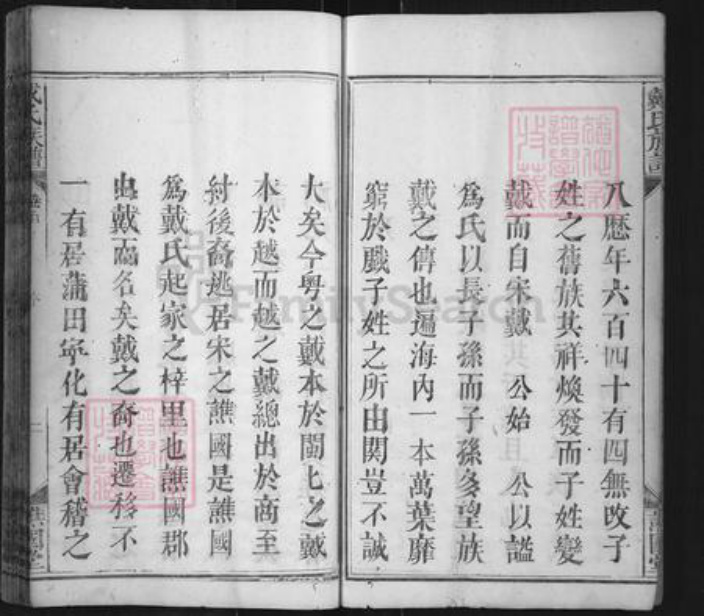 戴氏族譜
八歷年六百四十有四無改子
姓之舊族其祥煥發而子姓變
戴而自宋戴　公始　公以謚
爲氏以長子孫而子孫多望族
戴之傳也遍海內一本萬葉靡
窮於戲子姓之所由関豈不誠
大矣今粤之戴本於閩閩之戴
本於越而越之戴總出於商至
紂後裔逃居宋之譙國是譙國
爲戴氏起家之梓里也譙國郡
戴而名矣戴之裔也遷移不
一有居蒲田寧化有居會稽之
戴氏族譜
FamilySearch